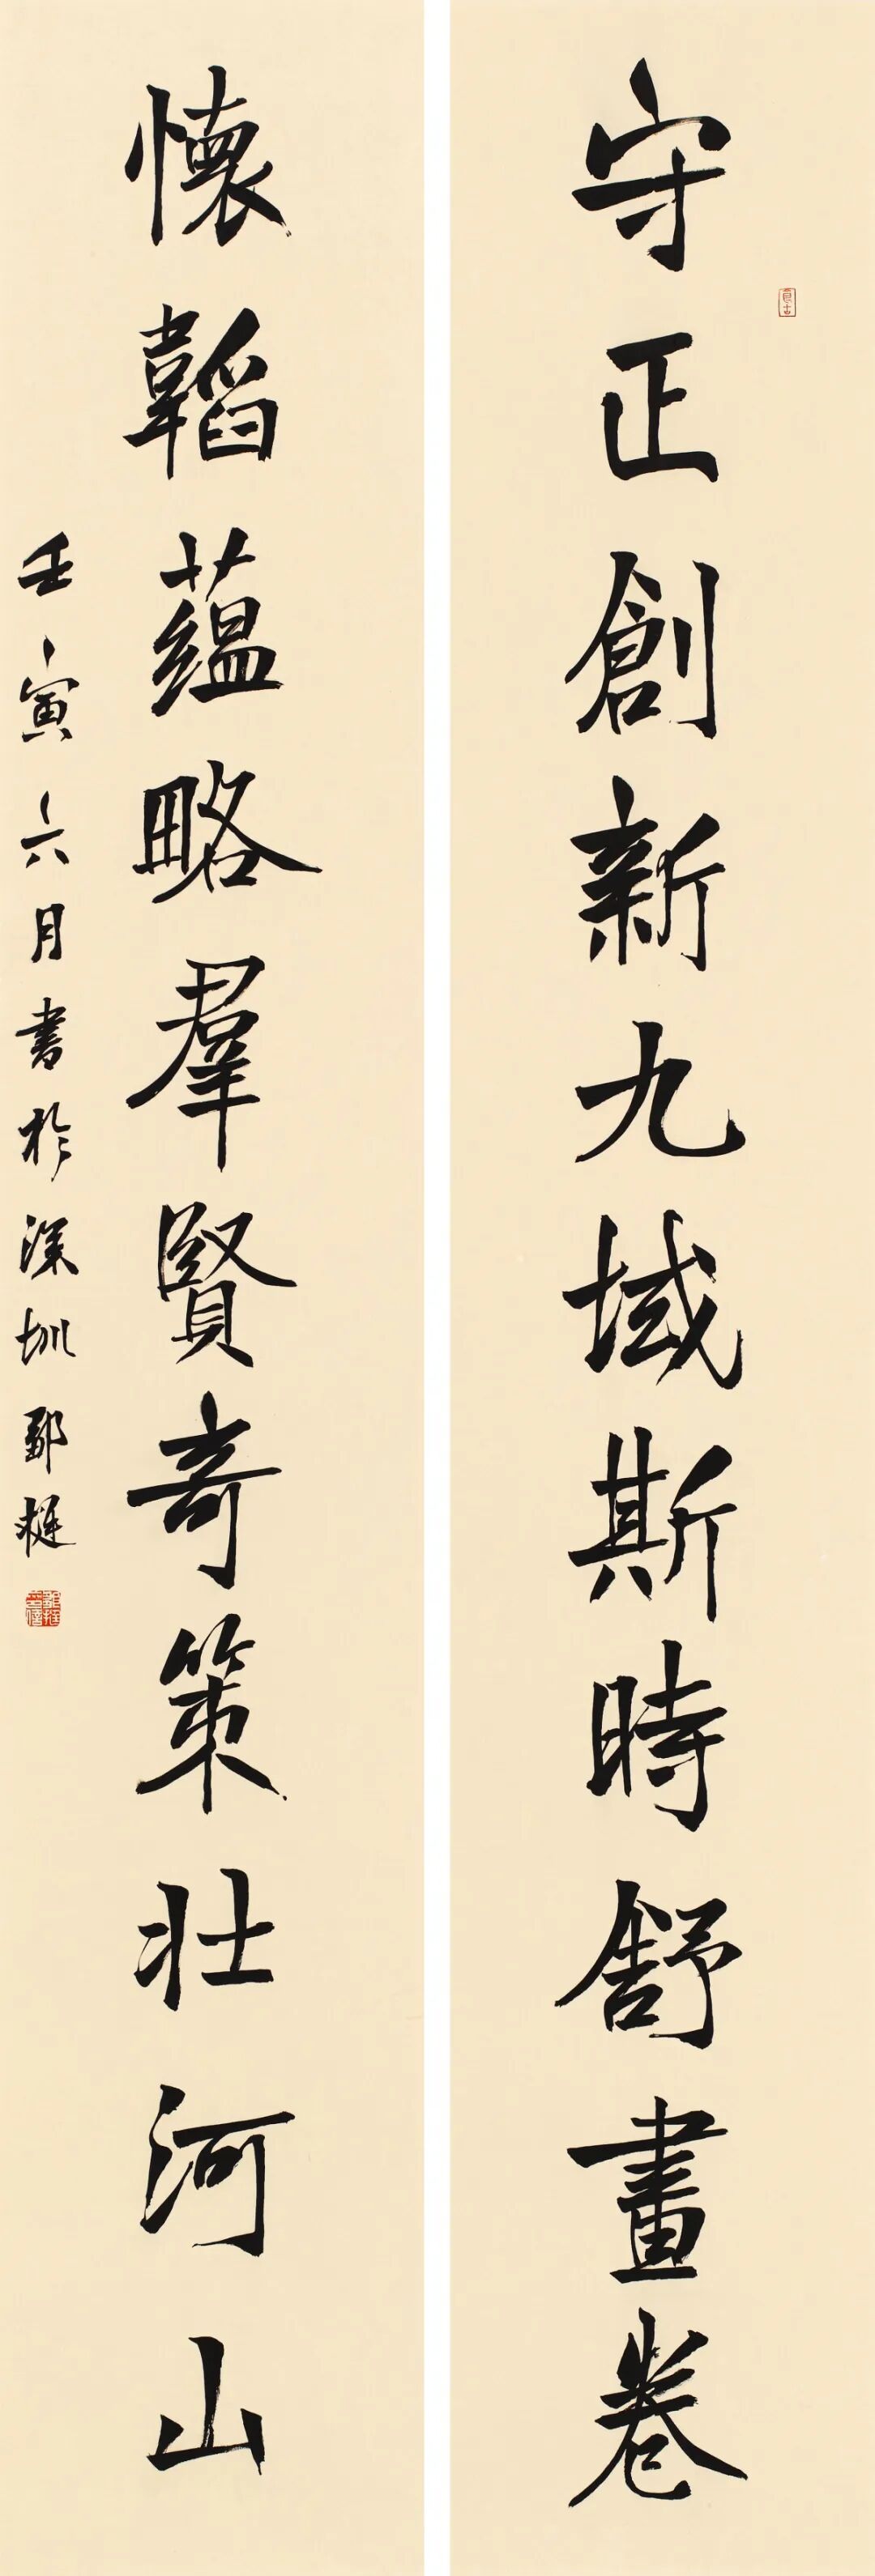 守正創新九域斯時舒畫卷
懷韜蘊略羣賢奇策壯河山
壬寅六月書於深圳鄞梃